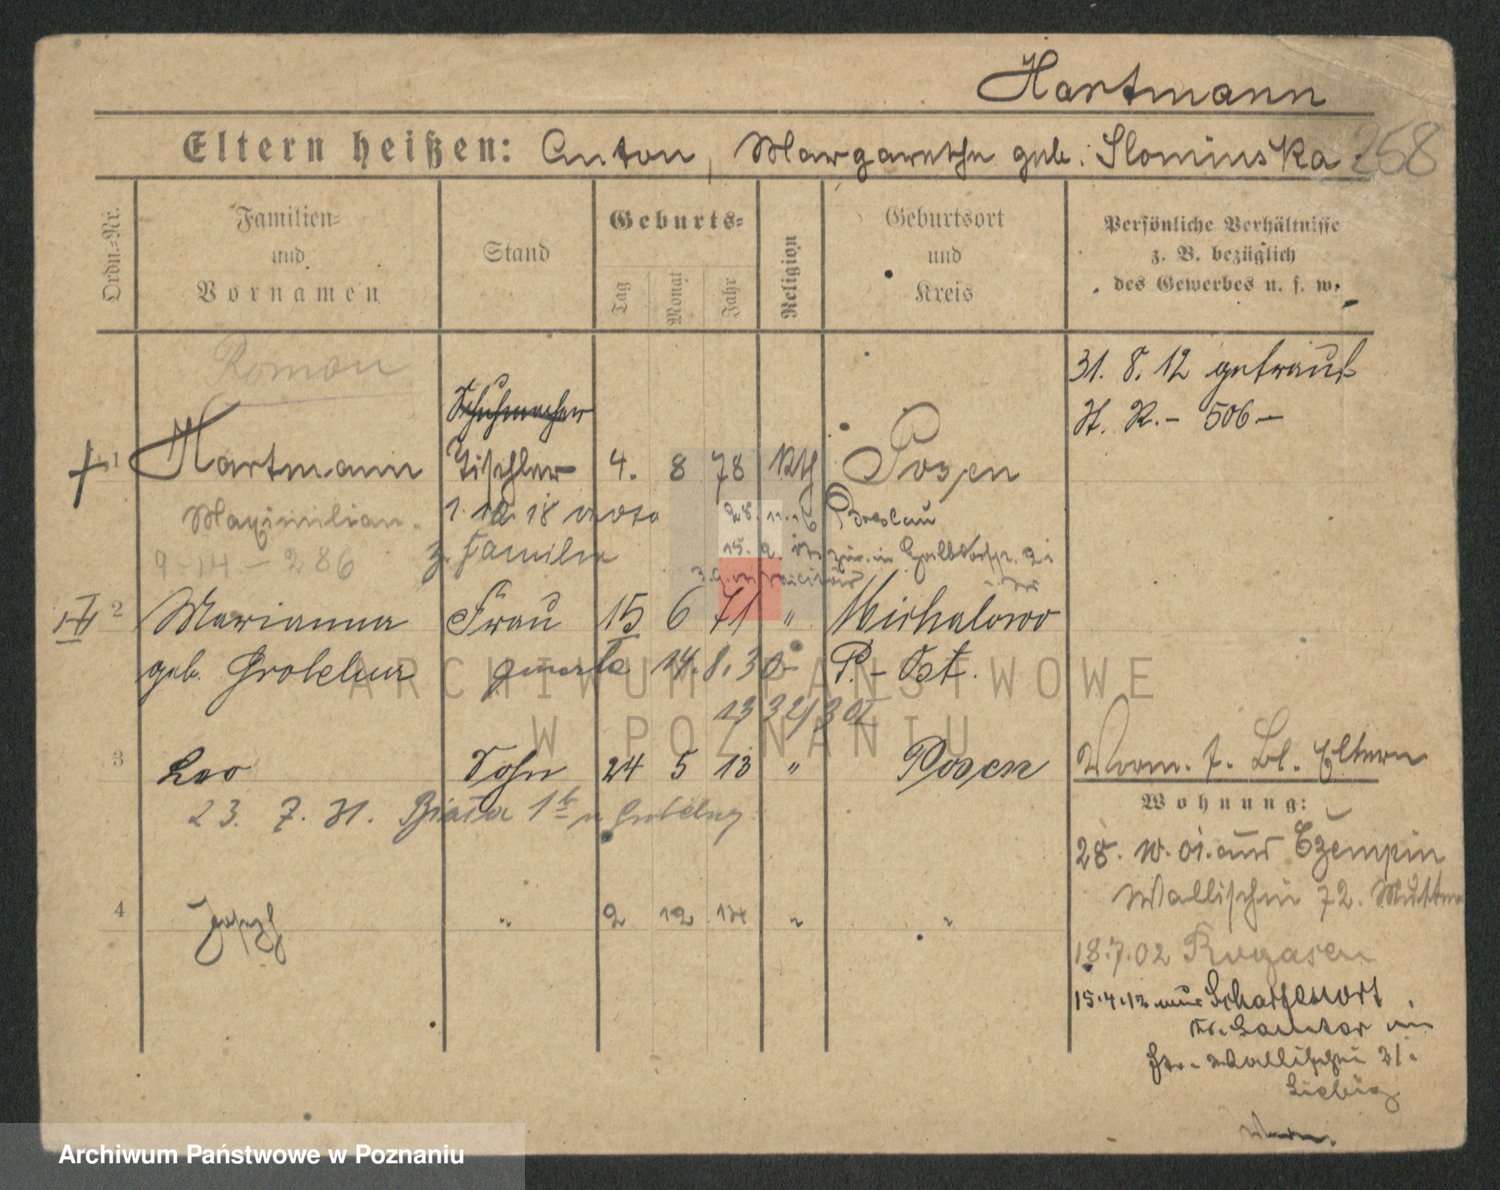 Hartmann
Eltern heißen: Anton, Margarethe geb. Slominska.
258
Ordn.-Nr.
Familien- und Vornamen
Stand
Geburts-
Tag Monat Jahr
Religion
Geburtsort und Kreis
Persönliche Verhältnisse z. B. bezüglich des Gewerbes u. s. w.
Roman
31. 8. 12 getraut
H. R. - 506 -
Schuhmacher
1 Hartmann Tischler 4. 8 78 Kth Posen
Maximilian. 1. 10. 18 28. 11. 16 Breslau
9-14-286 z. Familie 15. 9.
2 Marianna Frau 15 6 71 " Michalowo
geb. Grobelna 14. 8. 30 P.-Ost.
ARCHIWUM PAŃSTWOWE
W POZNANIU
3 Leo Sohn 24 5 13 " Posen
Vorm. f. Bl. Eltern
23. 7. 31.
Wohnung:
28. 10. 01. aus Czempin
Wallischei 72.
4 Joseph " 2 12 14 " "
18.7.02 Rogasen
15.4.12 aus Scharfenort
Wallischei 21.
Archiwum Państwowe w Poznaniu